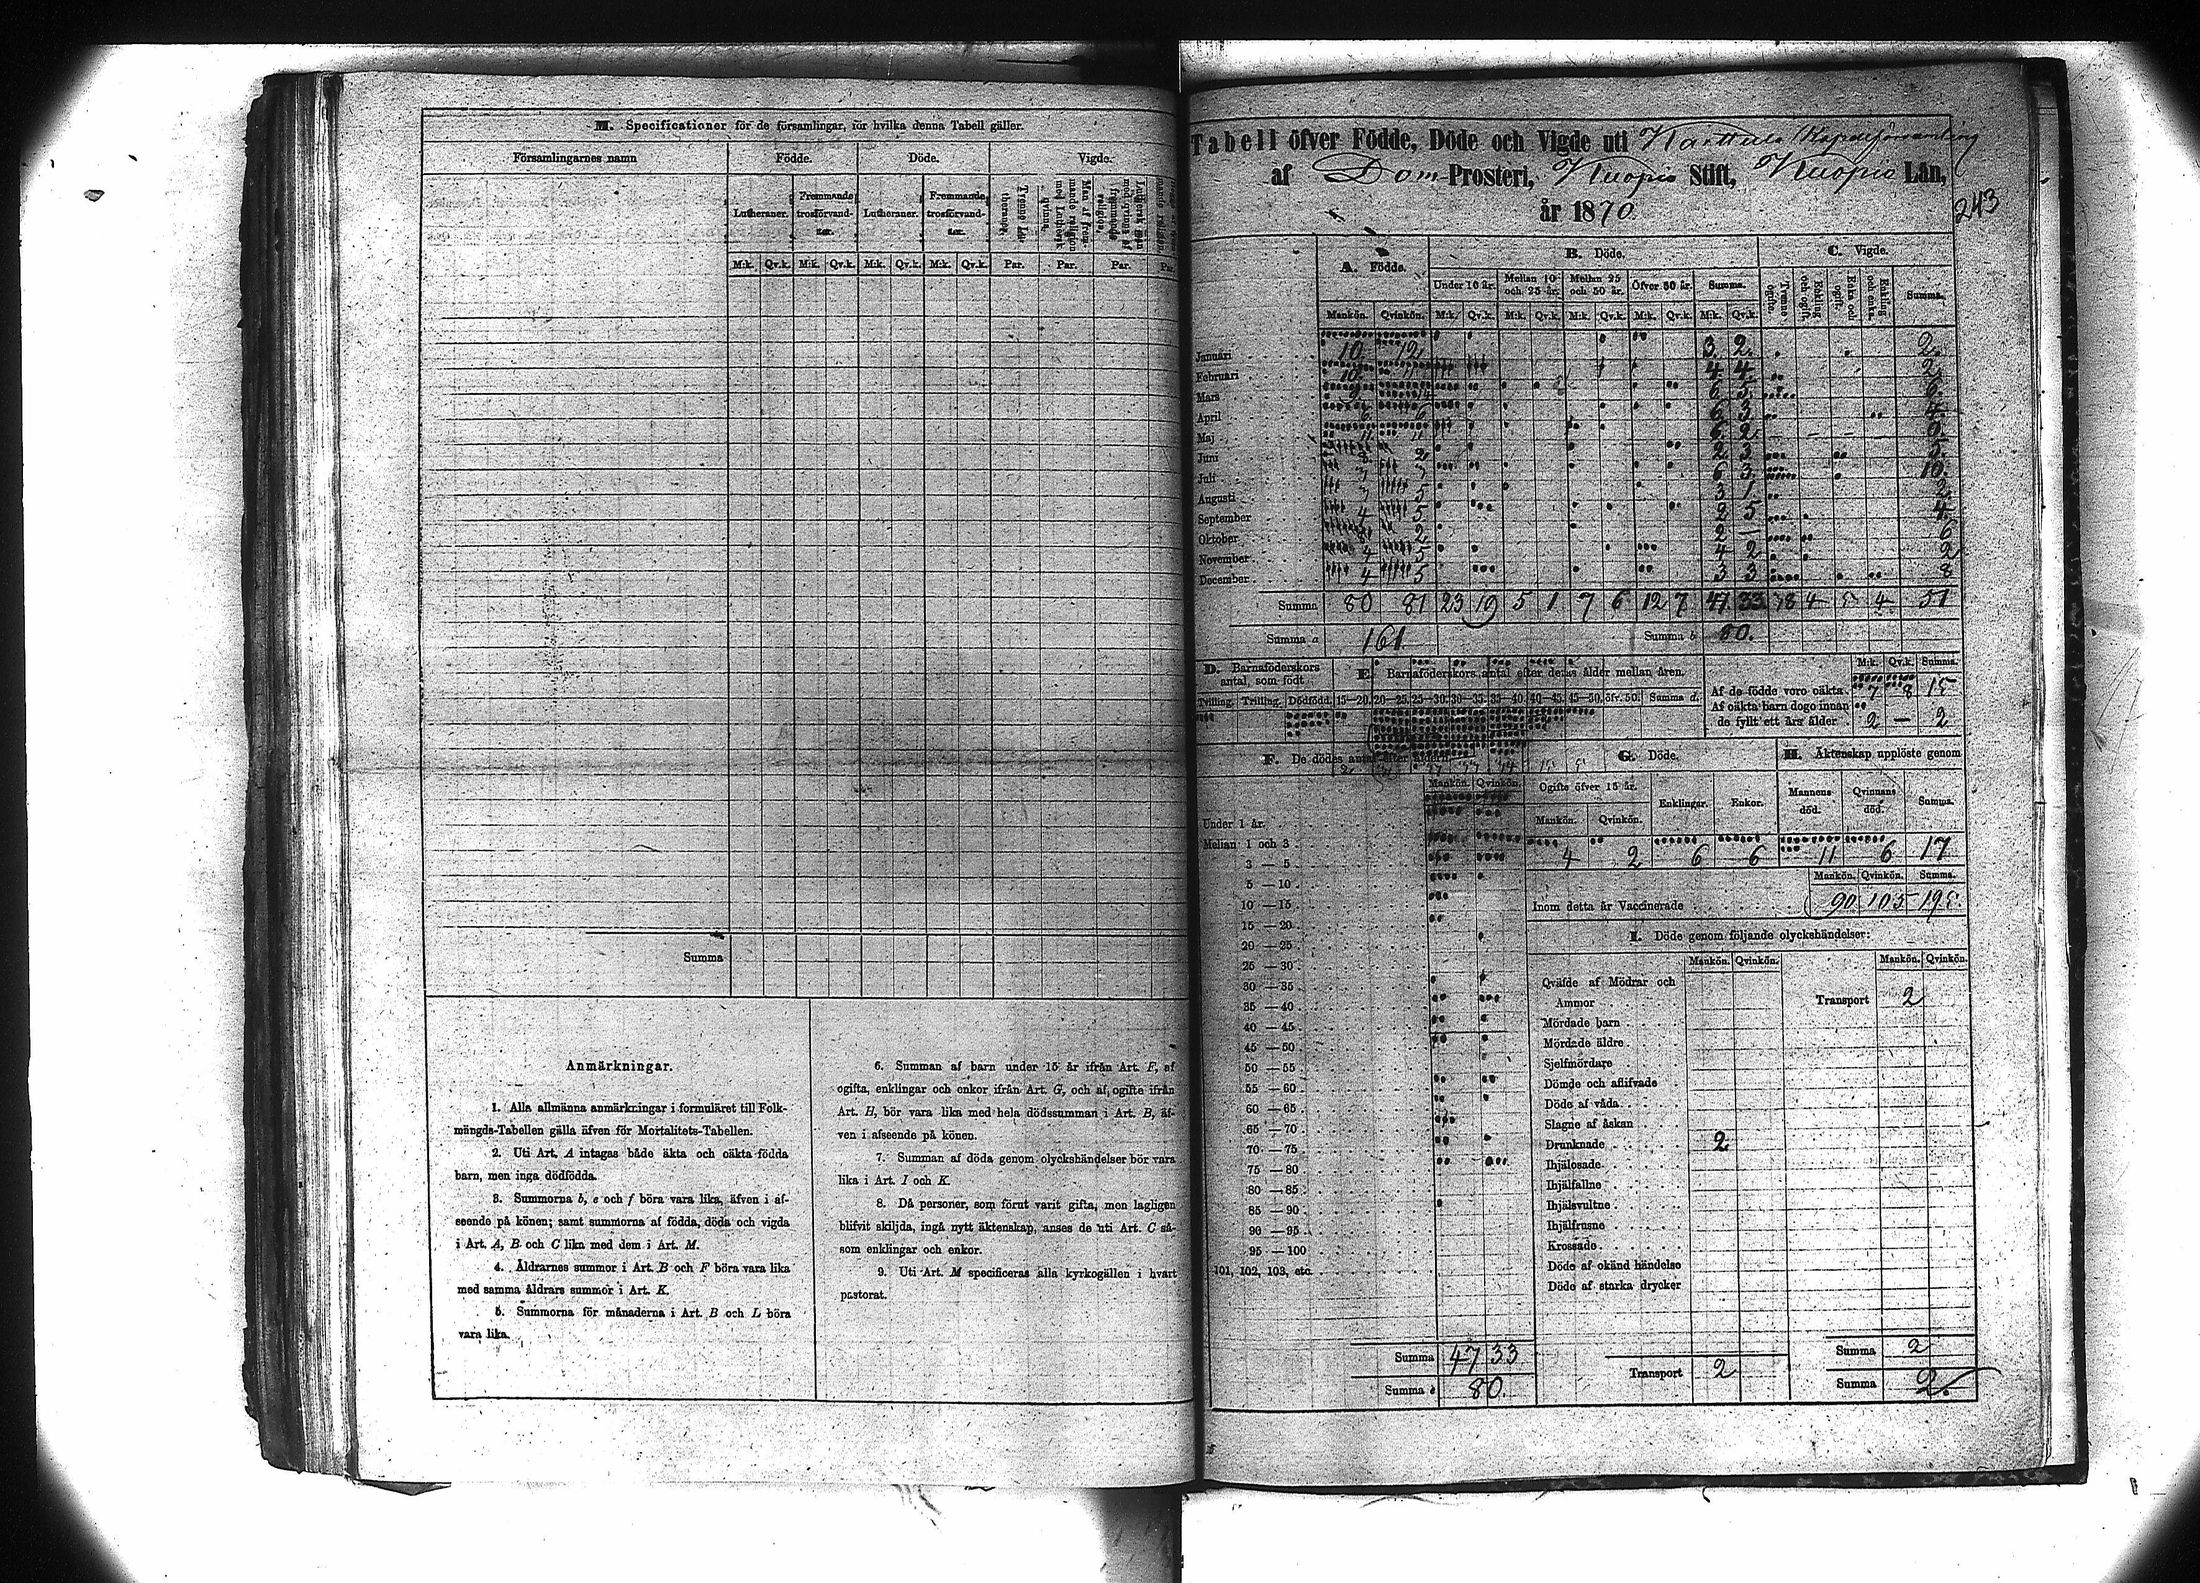 M. Specificationer för de församlingar, för hvilka denna Tabell gäller.
Församlingarnes namn
Födde.
Döde.
Vigde.
Lutheraner.
Fremmande trosförvandter.
Lutheraner.
Fremmande trosförvandter.
M:k. Qv.k. M:k. Qv.k. M:k. Qv.k. M:k. Qv.k. Par. Par. Par. Par.
Summa
Anmärkningar.
1. Alla allmänna anmärkningar i formuläret till Folk-
mängds-Tabellen gälla äfven för Mortalitets-Tabellen.
2. Uti Art. A intagas både äkta och oäkta födda
barn, men inga dödfödda.
3. Summorna b, e och f böra vara lika, äfven i af-
seende på könen; samt summorna af födda, döda och vigda
i Art. A, B och C lika med dem i Art. M.
4. Åldrarnes summor i Art. B och F böra vara lika
med samma åldrars summor i Art. K.
5. Summorna för månaderna i Art. B och L böra
vara lika.
6. Summan af barn under 15 år ifrån Art. F, af
ogifta, enklingar och enkor ifrån Art. G, och af ogifte ifrån
Art. H, bör vara lika med hela dödssumman i Art. B, äf-
ven i afseende på könen.
7. Summan af döda genom olyckshändelser bör vara
lika i Art. I och K.
8. Då personer, som förut varit gifta, men lagligen
blifvit skiljda, ingå nytt äktenskap, anses de uti Art. C så-
som enklingar och enkor.
9. Uti Art. M specificeras alla kyrkogällen i hvart
pastorat.
Tabell öfver Födde, Döde och Vigde uti Karttula
af Dom-Prosteri, Kuopio Stift, Kuopio Län,
år 1870
243
A. Födde.
B. Döde.
C. Vigde.
Under 10 år. Mellan 10 och 25 år. Mellan 25 och 50 år. Öfver 50 år. Summa.
Summa.
Mankön. Qvinkön. M:k. Qv.k. M:k. Qv.k. M:k. Qv.k. M:k. Qv.k. M:k. Qv.k.
Januari 10 12 3 2 2
Februari 10 4 4 2
Mars 9 14 6 5 6
April 6 6 6 3 4
Maj 11 11 6 2
Juni 8 2 2 3 5
Juli 3 3 6 3 10
Augusti 3 5 3 1 2
September 4 5 2 5 4
Oktober 8 2 2 — 6
November 4 5 4 2 2
December 4 5 3 3 8
Summa 80 81 23 19 5 1 7 6 12 7 47 33 38 4 5 4 51
Summa a 161
Summa b 80.
D. Barnaföderskors antal, som födt
Tvilling. Trilling. Dödfödd.
E. Barnaföderskors antal efter deras ålder mellan åren.
15—20. 20—25. 25—30. 30—35. 35—40. 40—45. 45—50. öfv. 50. Summa d.
M:k. Qv.k. Summa.
Af de födde voro oäkta 7 8 15
Af oäkta barn dogo innan
de fyllt ett års ålder 2 — 2
F. De dödes antal efter åldern
Mankön. Qvinkön.
Under 1 år.
Mellan 1 och 3
3 — 5
5 — 10
10 — 15
15 — 20
20 — 25
25 — 30
30 — 35
35 — 40
40 — 45
45 — 50
50 — 55
55 — 60
60 — 65
65 — 70
70 — 75
75 — 80
80 — 85
85 — 90
90 — 95
95 — 100
101, 102, 103, etc.
Summa 47 33
Summa e 80.
G. Döde.
Ogifte öfver 15 år.
Mankön. Qvinkön.
Enklingar.
Enkor.
4 2 6 6
H. Äktenskap upplöste genom
Mannens död.
Qvinnans död.
Summa.
11 6 17
Mankön. Qvinkön. Summa.
Inom detta år Vaccinerade 90 105 195.
I. Döde genom följande olyckshändelser:
Mankön. Qvinkön.
Mankön. Qvinkön.
Qväfde af Mödrar och
Ammor
Mördade barn
Mördade äldre
Sjelfmördare
Dömde och aflifvade
Döde af våda
Slagne af åskan
Drunknade 2
Ihjälosade
Ihjälfallne
Ihjälsvultne
Ihjälfrusne
Krossade
Döde af okänd händelse
Döde af starka drycker
Transport 2
Transport 2
Summa 2
Summa 2.